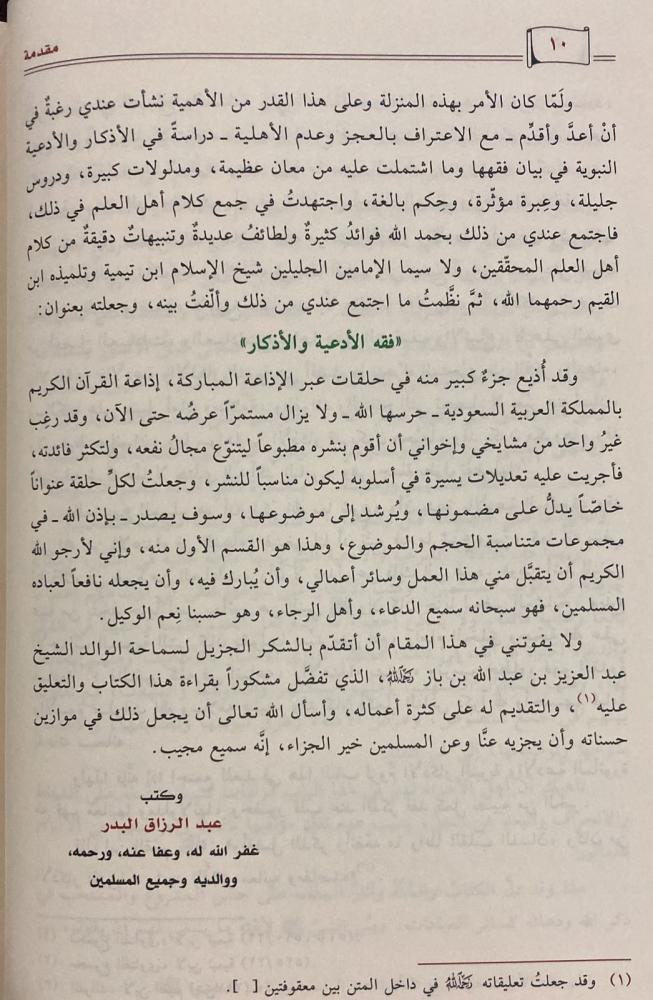 ١٠
مقدمة
ولَمّا كان الأمر بهذه المنزلة وعلى هذا القدر من الأهمية نشأت عندي رغبةٌ في
أنْ أعدَّ وأقدِّم ـ مع الاعتراف بالعجز وعدم الأهلية ـ دراسةً في الأذكار والأدعية
النبوية في بيان فقهها وما اشتملت عليه من معان عظيمة، ومدلولات كبيرة، ودروس
جليلة، وعِبرة مؤثّرة، وحِكم بالغة، واجتهدتُ في جمع كلام أهل العلم في ذلك،
فاجتمع عندي من ذلك بحمد الله فوائدُ كثيرةٌ ولطائفُ عديدةٌ وتنبيهاتٌ دقيقةٌ من كلام
أهل العلم المحقّقين، ولا سيما الإمامين الجليلين شيخ الإسلام ابن تيمية وتلميذه ابن
القيم رحمهما الله، ثمَّ نظَّمتُ ما اجتمع عندي من ذلك وألّفتُ بينه، وجعلته بعنوان:
«فقه الأدعية والأذكار»
وقد أُذيع جزءٌ كبير منه في حلقات عبر الإذاعة المباركة، إذاعة القرآن الكريم
بالمملكة العربية السعودية ـ حرسها الله ـ ولا يزال مستمرّاً عرضُه حتى الآن، وقد رغِب
غيرُ واحد من مشايخي وإخواني أن أقوم بنشره مطبوعاً ليتنوّع مجالُ نفعه، ولتكثر فائدته،
فأجريت عليه تعديلات يسيرة في أسلوبه ليكون مناسباً للنشر، وجعلتُ لكلِّ حلقة عنواناً
خاصّاً يدلُّ على مضمونها، ويُرشد إلى موضوعها، وسوف يصدر ـ بإذن الله ـ في
مجموعات متناسبة الحجم والموضوع، وهذا هو القسم الأول منه، وإني لأرجو الله
الكريم أن يتقبَّل مني هذا العمل وسائر أعمالي، وأن يُبارك فيه، وأن يجعله نافعاً لعباده
المسلمين، فهو سبحانه سميع الدعاء، وأهل الرجاء، وهو حسبنا نِعم الوكيل.
ولا يفوتني في هذا المقام أن أتقدّم بالشكر الجزيل لسماحة الوالد الشيخ
عبد العزيز بن عبد الله بن باز رَحِمَهُ اللهُ، الذي تفضَّل مشكوراً بقراءة هذا الكتاب والتعليق
عليه(١)، والتقديم له على كثرة أعماله، وأسأل الله تعالى أن يجعل ذلك في موازين
حسناته وأن يجزيه عنَّا وعن المسلمين خير الجزاء، إنَّه سميع مجيب.
وكتب
عبد الرزاق البدر
غفر الله له، وعفا عنه، ورحمه،
ووالديه وجميع المسلمين
(١) وقد جعلتُ تعليقاته رَحِمَهُ اللهُ في داخل المتن بين معقوفتين [ ].